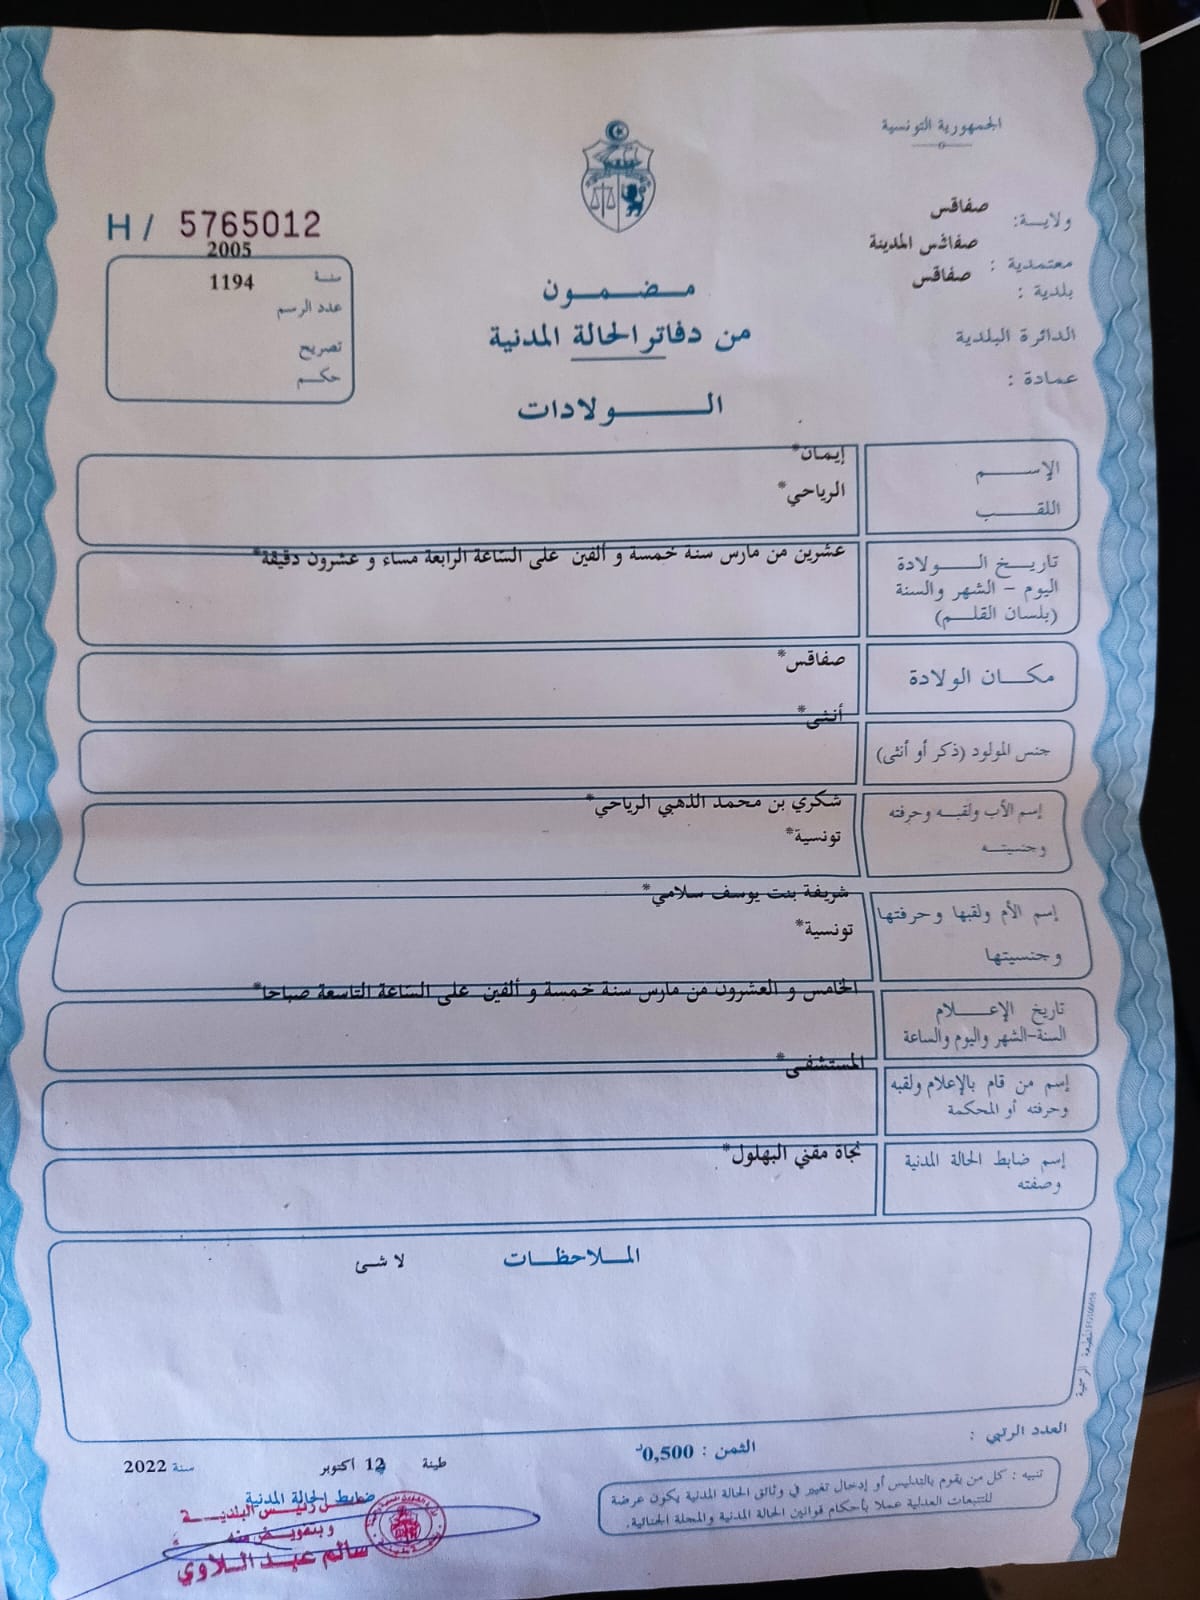 الجمهورية التونسية
ولاية: صفاقس
معتمدية : صفاقس المدينة
بلدية : صفاقس
الدائرة البلدية
عمادة :
H / 5765012
سنة 2005
عدد الرسم 1194
تصريح
حكم
مضمون
من دفاتر الحالة المدنية
الولادات
الإسم إيمان*
اللقب الرياحي*
تاريخ الولادة
اليوم - الشهر والسنة
(بلسان القلم)
عشرين من مارس سنة خمسة و ألفين على الساعة الرابعة مساء و عشرون دقيقة*
مكان الولادة صفاقس*
جنس المولود (ذكر أو أنثى) أنثى*
إسم الأب ولقبه وحرفته
وجنسيته
شكري بن محمد الذهبي الرياحي*
تونسية*
إسم الأم ولقبها وحرفتها
وجنسيتها
شريفة بنت يوسف سلامي*
تونسية*
تاريخ الإعلام
السنة-الشهر واليوم والساعة
الخامس و العشرون من مارس سنة خمسة و ألفين على الساعة التاسعة صباحا*
إسم من قام بالإعلام ولقبه
وحرفته أو المحكمة
المستشفى*
إسم ضابط الحالة المدنية
وصفته
نجاة مقني البهلول*
الملاحظات لا شئ
العدد الرتبي :
الثمن : 0,500د
تنبيه : كل من يقوم بالتدليس أو إدخال تغيير في وثائق الحالة المدنية يكون عرضة
للتتبعات العدلية عملا بأحكام قوانين الحالة المدنية والمجلة الجنائية.
طينة 12 أكتوبر سنة 2022
ضابط الحالة المدنية
عن رئيس البلدية
وبتفويض منه
سالم عبد اللاوي